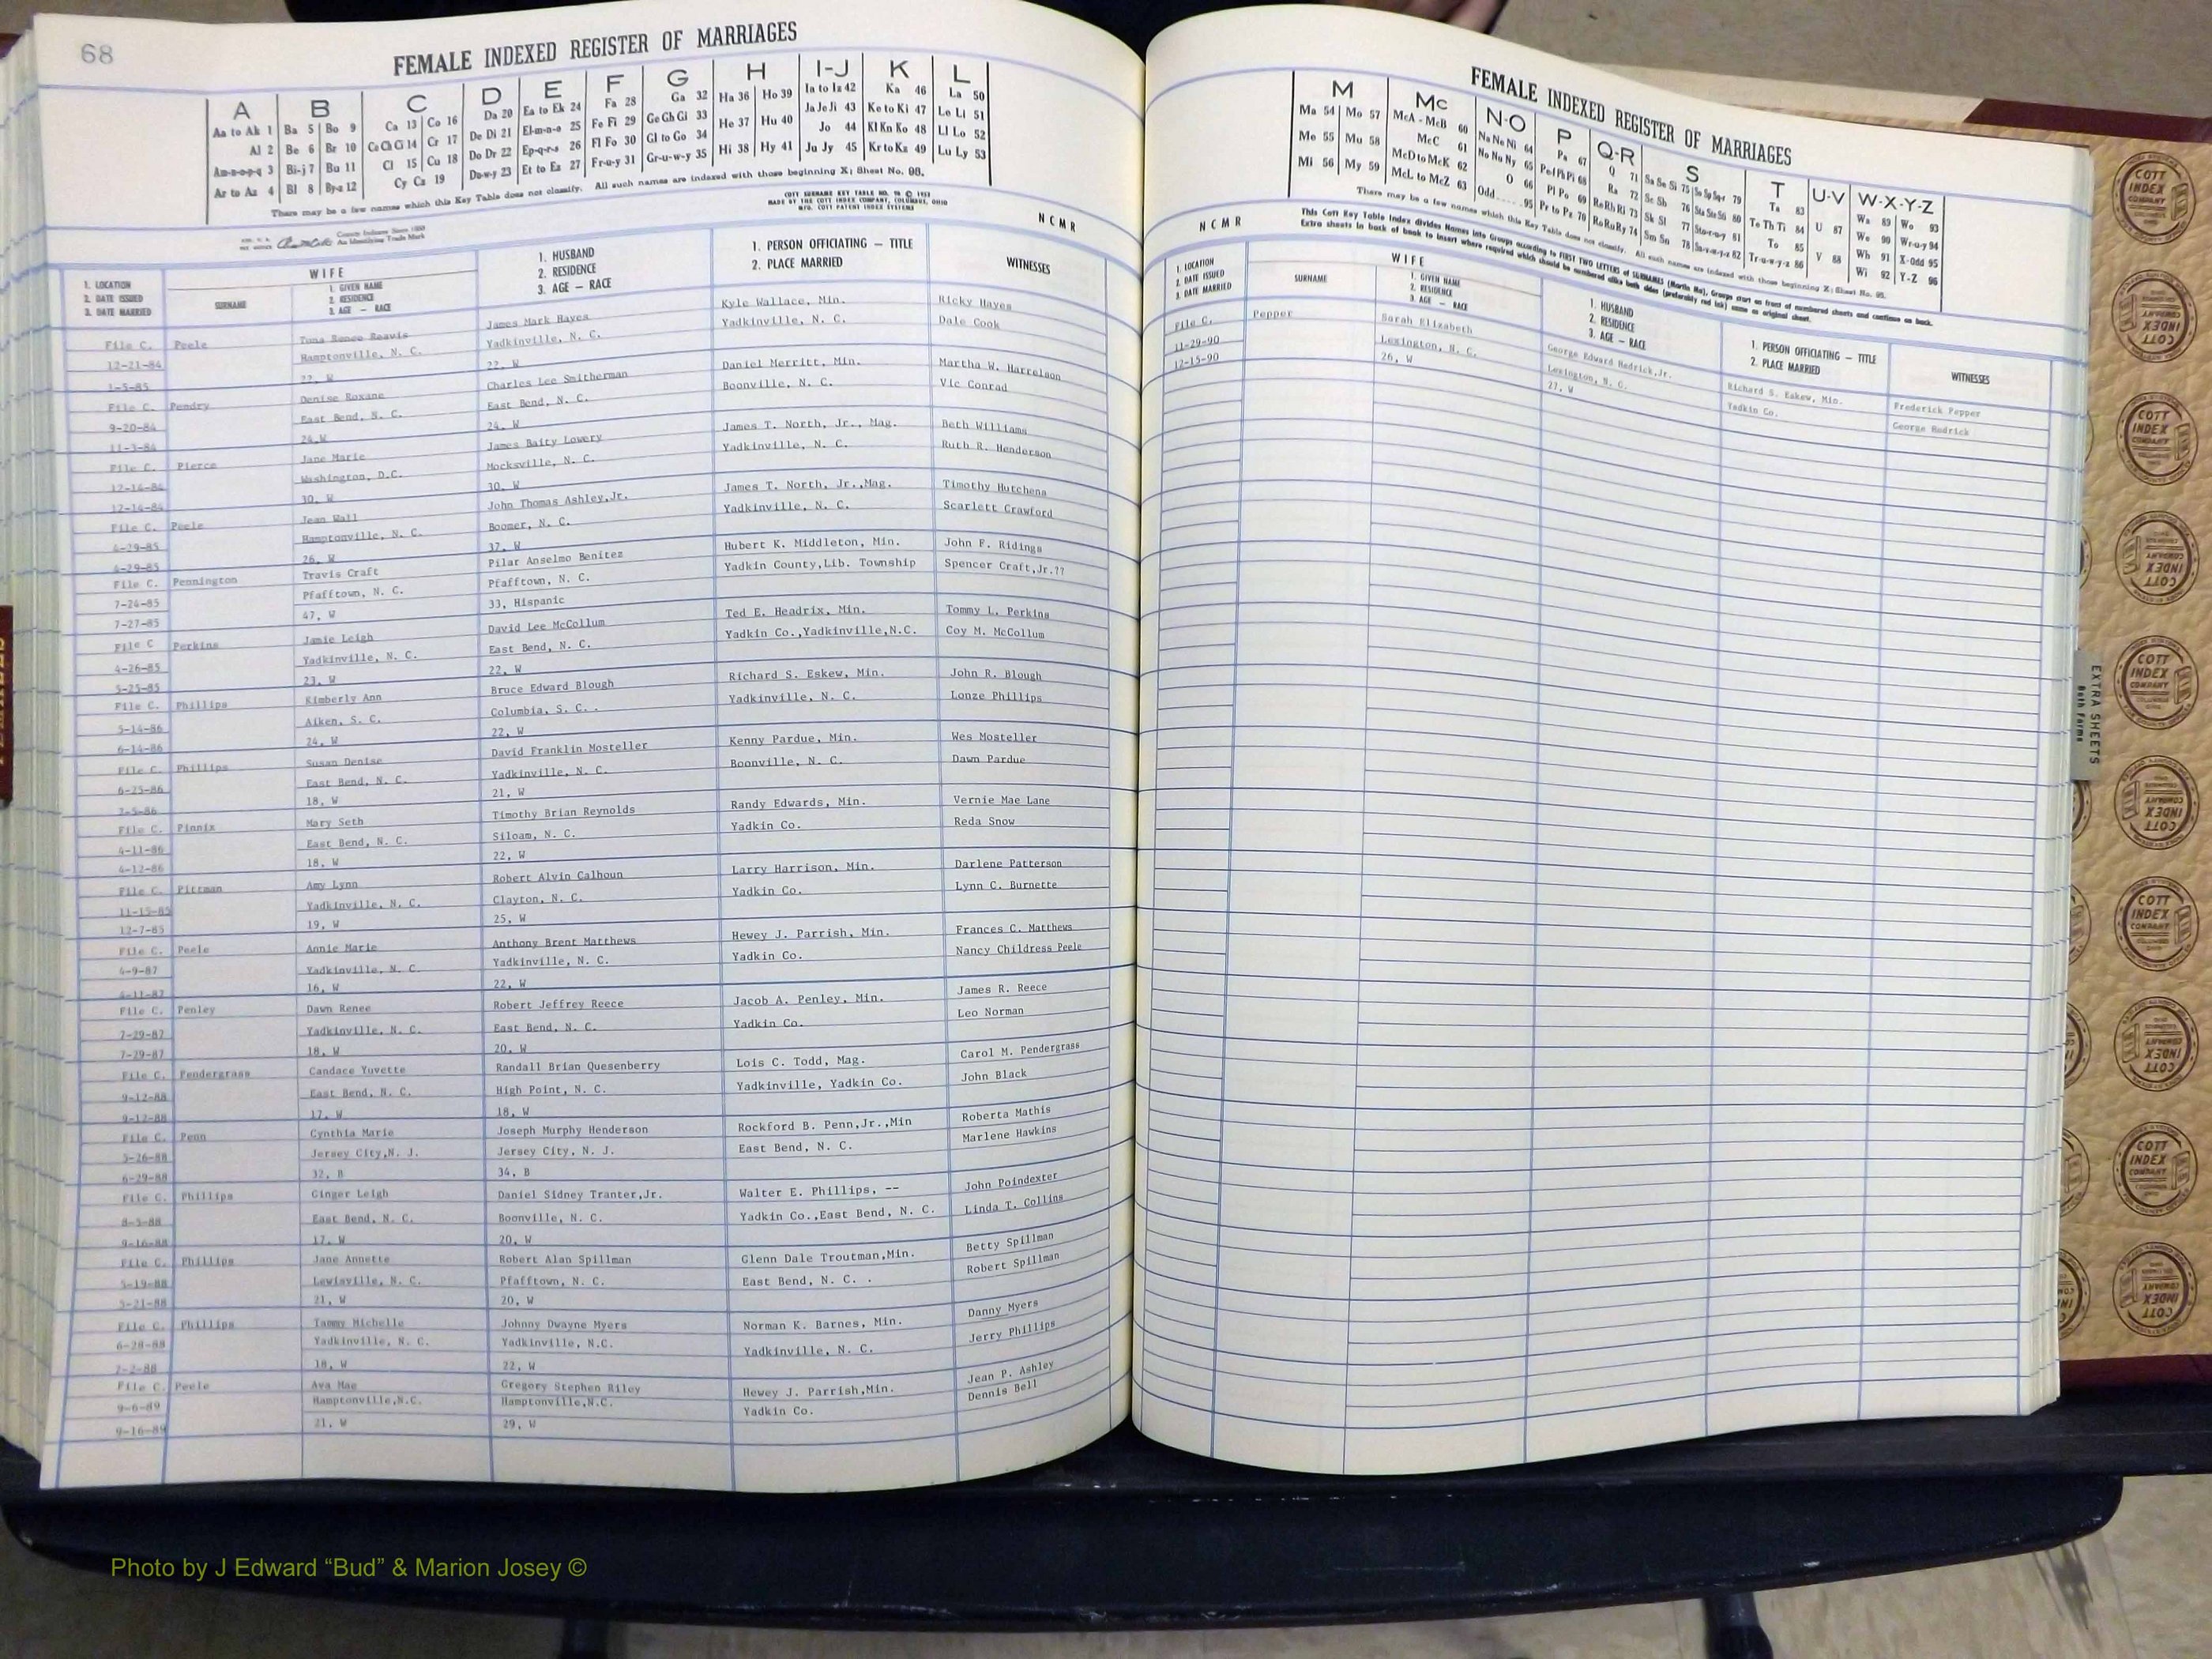 68
FEMALE INDEXED REGISTER OF MARRIAGES
A B C D E F G H I-J K L
Aa to Ak 1 Ba 5 Bo 9 Ca 13 Co 16 Da 20 Ea to Ek 24 Fa 28 Ga 32 Ha 36 Ho 39 Ia to Iz 42 Ka 46 La 50
Al 2 Be 6 Br 10 Ce Ch Ci 14 Cr 17 De Di 21 El-m-n-o 25 Fe Fi 29 Ge Gh Gi 33 He 37 Hu 40 Ja Je Ji 43 Ke to Ki 47 Le Li 51
Am-n-o-p-q 3 Bi-j 7 Bu 11 Cl 15 Cu 18 Do Dr 22 Ep-q-r-s 26 Fl Fo 30 Gl to Go 34 Hi 38 Hy 41 Jo 44 Kl Kn Ko 48 Ll Lo 52
Ar to Az 4 Bl 8 By-z 12 Cy Cz 19 Du-w-y 23 Et to Ez 27 Fr-u-y 31 Gr-u-w-y 35 Ju Jy 45 Kr to Kz 49 Lu Ly 53
There may be a few names which this Key Table does not classify. All such names are indexed with those beginning X; Sheet No. 98.
N C M R
WIFE
1. LOCATION
2. DATE ISSUED
3. DATE MARRIED
SURNAME
1. GIVEN NAME
2. RESIDENCE
3. AGE — RACE
1. HUSBAND
2. RESIDENCE
3. AGE — RACE
1. PERSON OFFICIATING — TITLE
2. PLACE MARRIED
WITNESSES
File C. Peele Tona Renee Reavis James Mark Hayes Kyle Wallace, Min. Ricky Hayes
12-21-84 Hamptonville, N. C. Yadkinville, N. C. Yadkinville, N. C. Dale Cook
1-5-85 22, W 22, W
File C. Pendry Denise Roxane Charles Lee Smitherman Daniel Merritt, Min. Martha W. Harrelson
9-20-84 East Bend, N. C. East Bend, N. C. Boonville, N. C. Vic Conrad
11-3-84 24,W 24, W
File C. Pierce Jane Marie James Baity Lowery James T. North, Jr., Mag. Beth Williams
12-14-84 Washington, D.C. Mocksville, N. C. Yadkinville, N. C. Ruth R. Henderson
12-14-84 30, W 30, W
File C. Peele Jean Wall John Thomas Ashley,Jr. James T. North, Jr.,Mag. Timothy Hutchens
4-29-85 Hamptonville, N. C. Boomer, N. C. Yadkinville, N. C. Scarlett Crawford
4-29-85 26, W 37, W
File C. Pennington Travis Craft Pilar Anselmo Benitez Hubert K. Middleton, Min. John F. Ridings
7-24-85 Pfafftown, N. C. Pfafftown, N. C. Yadkin County,Lib. Township Spencer Craft,Jr.??
7-27-85 47, W 33, Hispanic
File C Perkins Jamie Leigh David Lee McCollum Ted E. Headrix, Min. Tommy L. Perkins
4-26-85 Yadkinville, N. C. East Bend, N. C. Yadkin Co.,Yadkinville,N.C. Coy M. McCollum
5-25-85 23, W 22, W
File C. Phillips Kimberly Ann Bruce Edward Blough Richard S. Eskew, Min. John R. Blough
5-14-86 Aiken, S. C. Columbia, S. C. . Yadkinville, N. C. Lonze Phillips
6-14-86 24, W 22, W
File C. Phillips Susan Denise David Franklin Mosteller Kenny Pardue, Min. Wes Mosteller
6-25-86 East Bend, N. C. Yadkinville, N. C. Boonville, N. C. Dawn Pardue
7-5-86 18, W 21, W
File C. Pinnix Mary Seth Timothy Brian Reynolds Randy Edwards, Min. Vernie Mae Lane
4-11-86 East Bend, N. C. Siloam, N. C. Yadkin Co. Reda Snow
4-12-86 18, W 22, W
File C. Pittman Amy Lynn Robert Alvin Calhoun Larry Harrison, Min. Darlene Patterson
11-15-85 Yadkinville, N. C. Clayton, N. C. Yadkin Co. Lynn C. Burnette
12-7-85 19, W 25, W
File C. Peele Annie Marie Anthony Brent Matthews Hewey J. Parrish, Min. Frances C. Matthews
4-9-87 Yadkinville, N. C. Yadkinville, N. C. Yadkin Co. Nancy Childress Peele
4-11-87 16, W 22, W
File C. Penley Dawn Renee Robert Jeffrey Reece Jacob A. Penley, Min. James R. Reece
7-29-87 Yadkinville, N. C. East Bend, N. C. Yadkin Co. Leo Norman
7-29-87 18, W 20, W
File C. Pendergrass Candace Yuvette Randall Brian Quesenberry Lois C. Todd, Mag. Carol M. Pendergrass
9-12-88 East Bend, N. C. High Point, N. C. Yadkinville, Yadkin Co. John Black
9-12-88 17, W 18, W
File C. Penn Cynthia Marie Joseph Murphy Henderson Rockford B. Penn,Jr.,Min Roberta Mathis
5-26-88 Jersey City,N. J. Jersey City, N. J. East Bend, N. C. Marlene Hawkins
6-29-88 32, B 34, B
File C. Phillips Ginger Leigh Daniel Sidney Tranter,Jr. Walter E. Phillips, -- John Poindexter
8-5-88 East Bend, N. C. Boonville, N. C. Yadkin Co.,East Bend, N. C. Linda T. Collins
9-16-88 17, W 20, W
File C. Phillips Jane Annette Robert Alan Spillman Glenn Dale Troutman,Min. Betty Spillman
5-19-88 Lewisville, N. C. Pfafftown, N. C. East Bend, N. C. . Robert Spillman
5-21-88 21, W 20, W
File C. Phillips Tammy Michelle Johnny Dwayne Myers Norman K. Barnes, Min. Danny Myers
6-28-88 Yadkinville, N. C. Yadkinville, N.C. Yadkinville, N. C. Jerry Phillips
7-2-88 18, W 22, W
File C. Peele Ava Mae Gregory Stephen Riley Hewey J. Parrish,Min. Jean P. Ashley
9-6-89 Hamptonville,N.C. Hamptonville,N.C. Yadkin Co. Dennis Bell
9-16-89 21, W 29, W
FEMALE INDEXED REGISTER OF MARRIAGES
M Mc N-O P Q-R S T U-V W-X-Y-Z
Ma 54 Mo 57 McA - McB 60 Na Ne Ni 64 Pa 67 Q 71 Sa Se Si 75 Ta 83 U 87 Wa 89 Wo 93
Me 55 Mu 58 McC 61 No Nu Ny 65 Pe Pf Ph Pi 68 Ra 72 Sc Sh 76 Te Th Ti 84 V 88 We 90 Wr-u-y 94
Mi 56 My 59 McD to McK 62 O 66 Pl Po 69 Re Rh Ri 73 Sk Sl 77 To 85 Wh 91 X-Odd 95
McL to McZ 63 Odd 95 Pr to Pz 70 Ro Ru Ry 74 Sm Sn 78 Tr-u-w-y-z 86 Wi 92 Y-Z 96
There may be a few names which this Key Table does not classify. All such names are indexed with those beginning X; Sheet No. 98.
N C M R
This Cott Key Table Index divides Names into Groups according to FIRST TWO LETTERS of SURNAMES
WIFE
1. LOCATION
2. DATE ISSUED
3. DATE MARRIED
SURNAME
1. GIVEN NAME
2. RESIDENCE
3. AGE — RACE
1. HUSBAND
2. RESIDENCE
3. AGE — RACE
1. PERSON OFFICIATING — TITLE
2. PLACE MARRIED
WITNESSES
File C. Pepper Sarah Elizabeth George Edward Hedrick,Jr. Richard S. Eskew, Min. Frederick Pepper
11-29-90 Lexington, N. C. Lexington, N. C. Yadkin Co. George Hedrick
12-15-90 26, W 27, W
EXTRA SHEETS
Both Parts
COTT INDEX COMPANY
Photo by J Edward “Bud” & Marion Josey ©